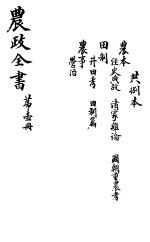 農本
經史典故 諸家雜論 國朝重農考
田制
井田考 田制篇
農事
營治
農政全書 第壹冊